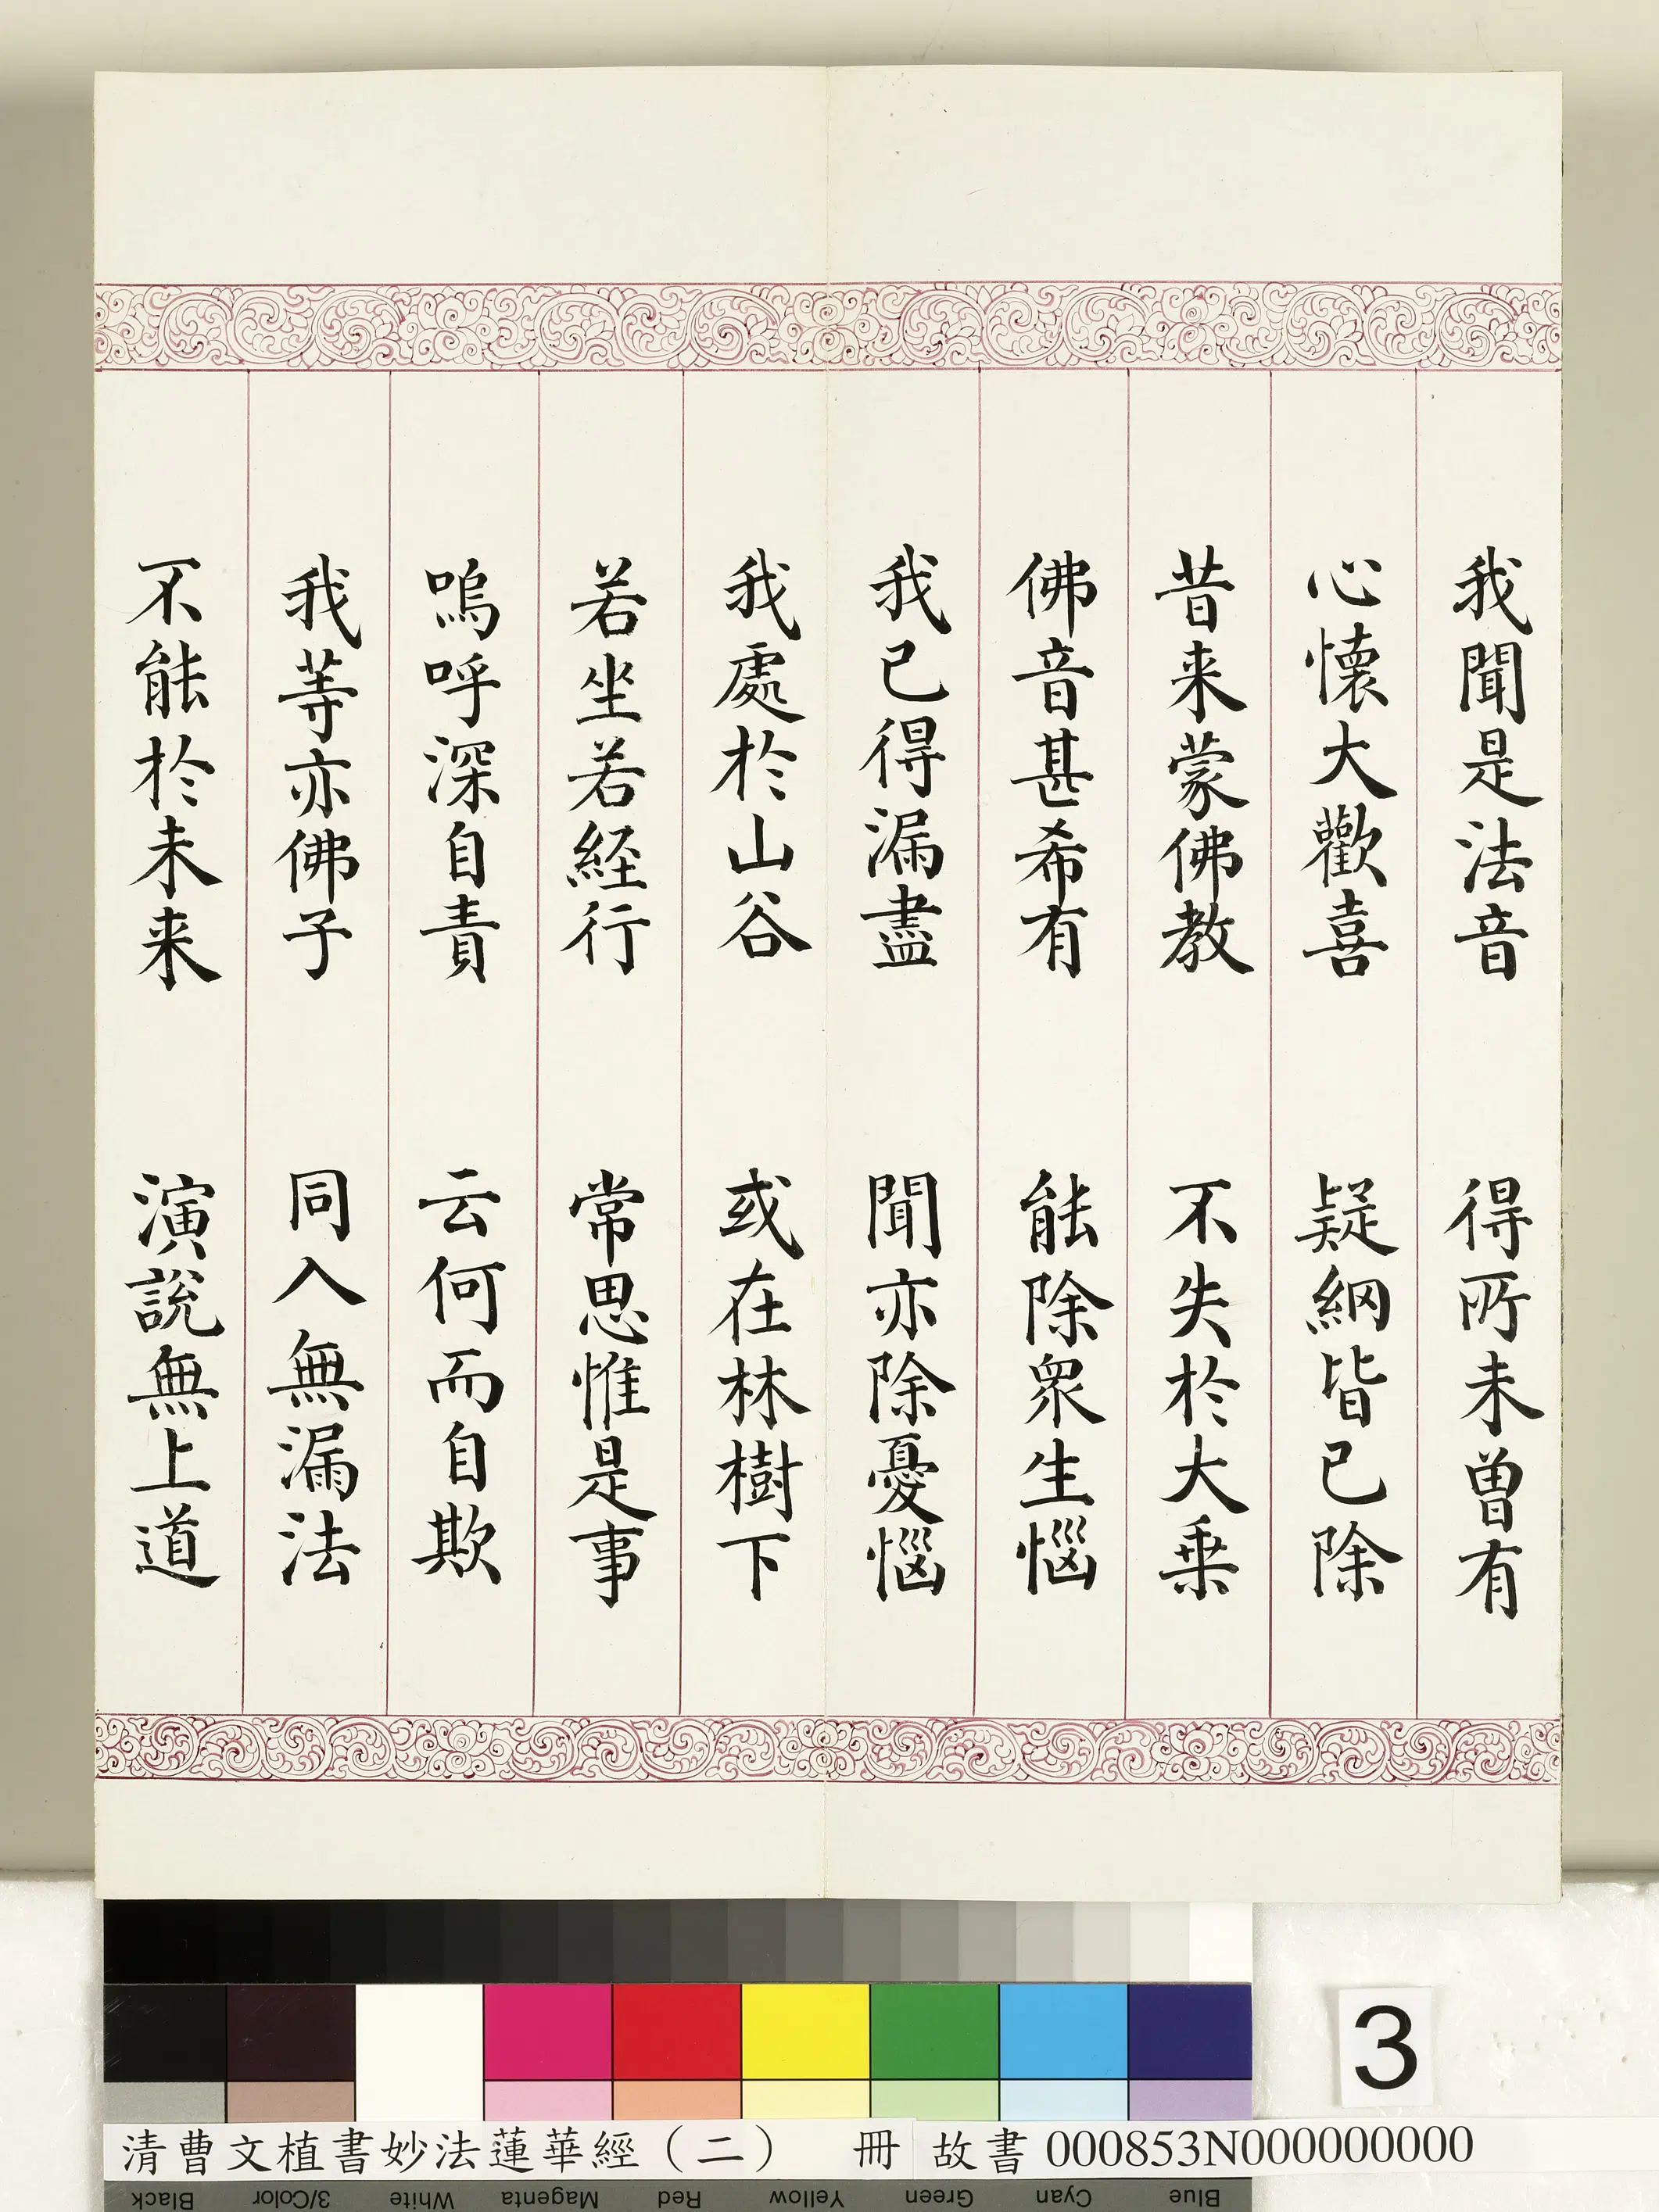 我聞是法音　得所未曾有
心懷大歡喜　疑網皆已除
昔来蒙佛教　不失於大乗
佛音甚希有　能除衆生惱
我已得漏盡　聞亦除憂惱
我處於山谷　或在林樹下
若坐若経行　常思惟是事
嗚呼深自責　云何而自欺
我等亦佛子　同入無漏法
不能於未来　演說無上道
3
清曹文植書妙法蓮華經（二）　冊　故書 000853N000000000
Black 3/Color White Magenta Red Yellow Green Cyan Blue